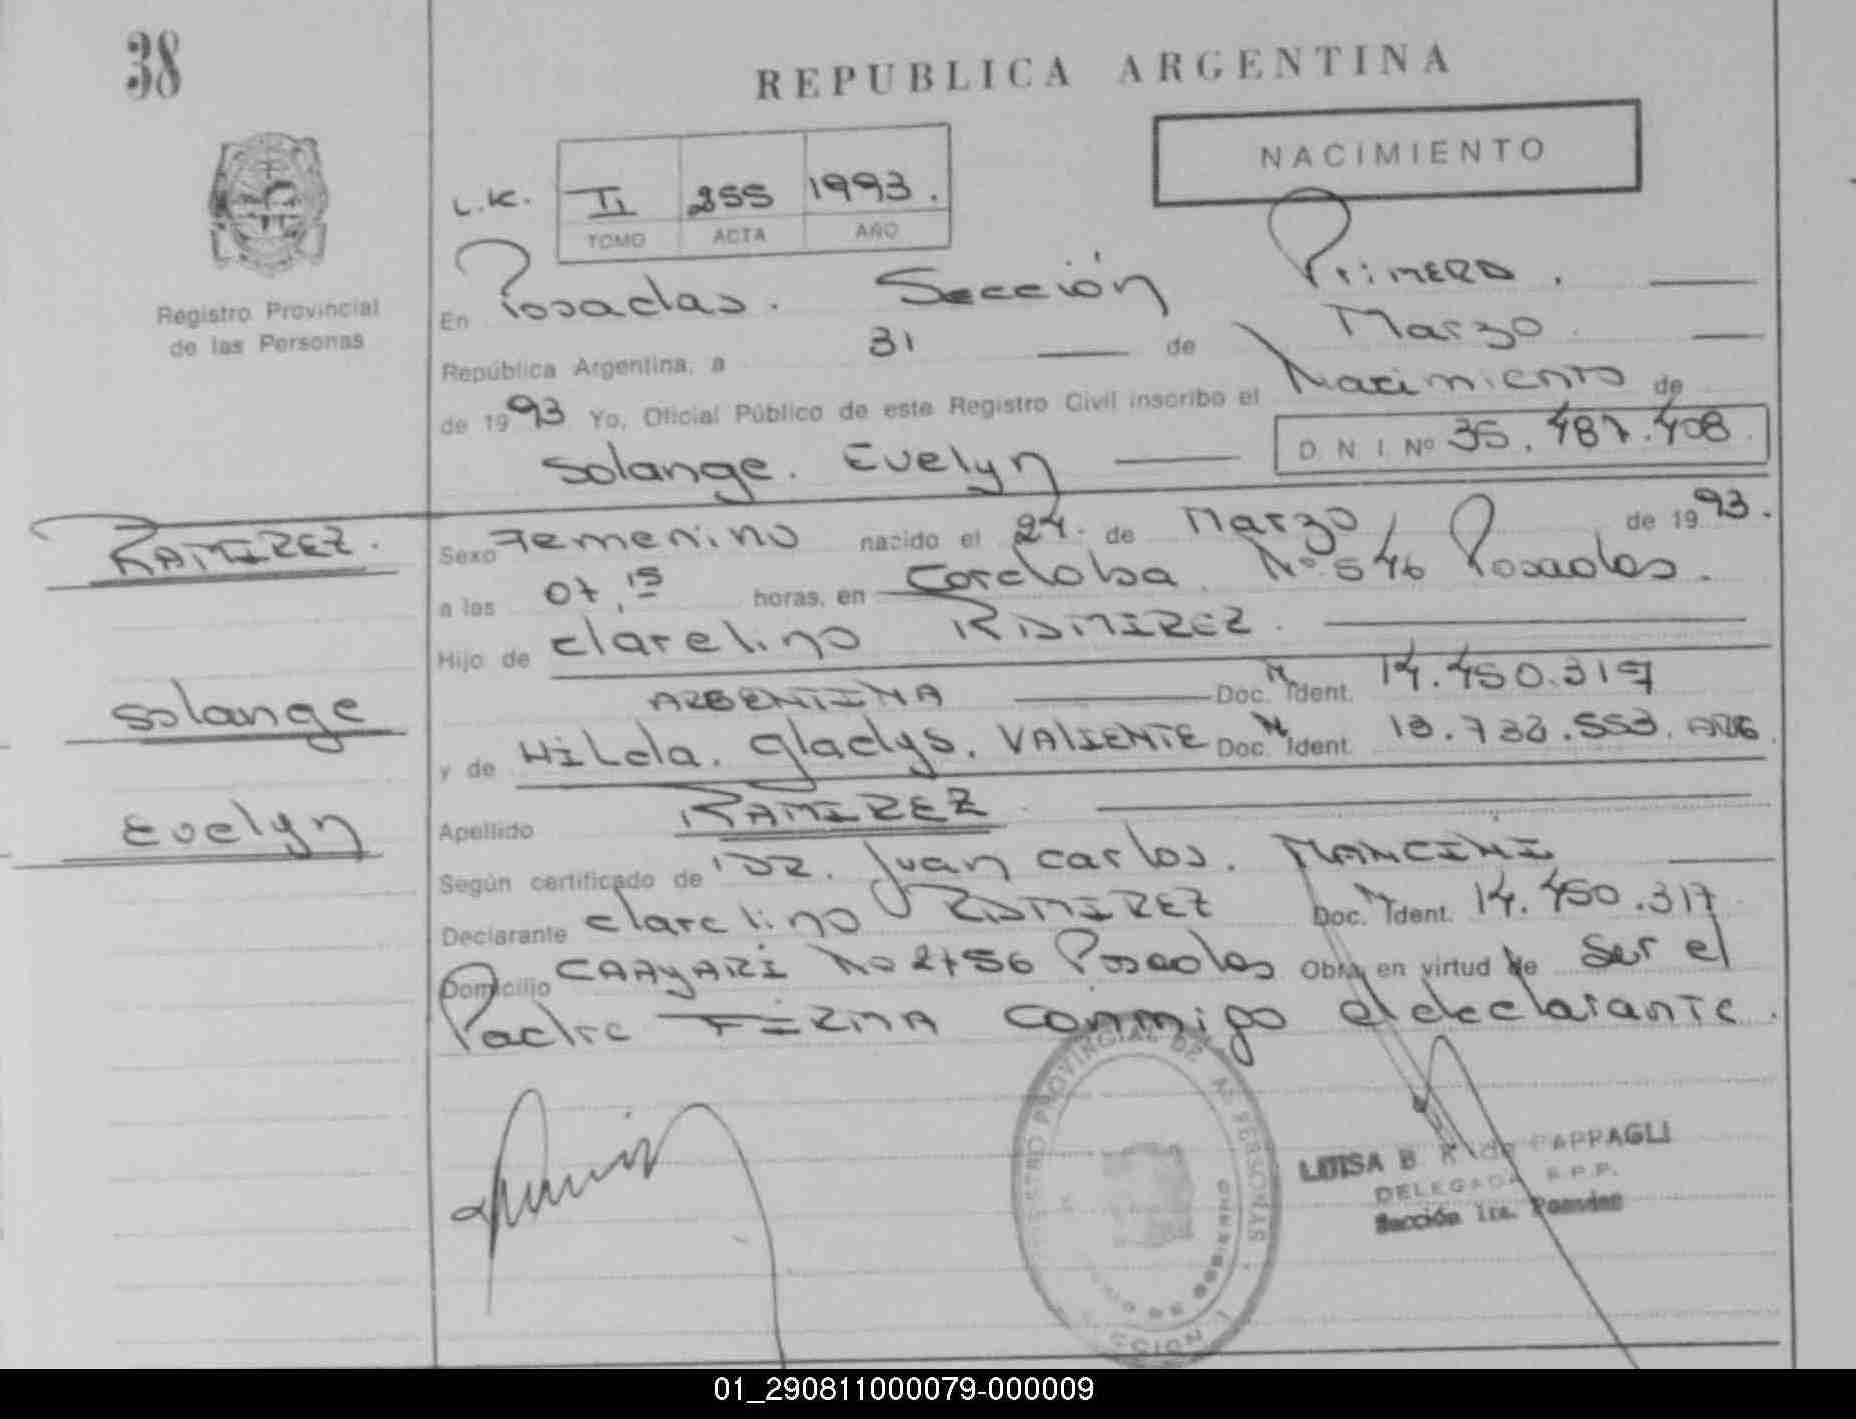 38
REPUBLICA ARGENTINA
NACIMIENTO
L.K. II 255 1993.
TOMO ACTA AÑO
Registro Provincial
de las Personas
En Posadas. Sección Primera.
República Argentina, a 31 de Marzo
de 1993 Yo, Oficial Público de este Registro Civil inscribo el Nacimiento de
Solange. Evelyn D. N. I. Nº 35.487.408
RAMIREZ.
Solange
Evelyn
Sexo Femenino nacido el 24. de Marzo de 1993.
a las 07,15 horas, en Cordoba. Nº 546 Posadas.
Hijo de Clarelino RAMIREZ.
ARGENTINA Doc. Ident. 14.450.317
y de Hilda. Gladys. VALIENTE Doc. Ident. 13.732.553. ARG.
Apellido RAMIREZ
Según certificado de DR. Juan Carlos. MANCINI
Declarante Clarelino RAMIREZ Doc. Ident. 14.450.317
Domicilio CAAYARI Nº 2756 Posadas Obra en virtud de Ser el
Padre FIRMA conmigo el declarante.
LUISA B. de PAPPAGLI
DELEGADA R.P.P.
Sección 1ra. Posadas
01_290811000079-000009